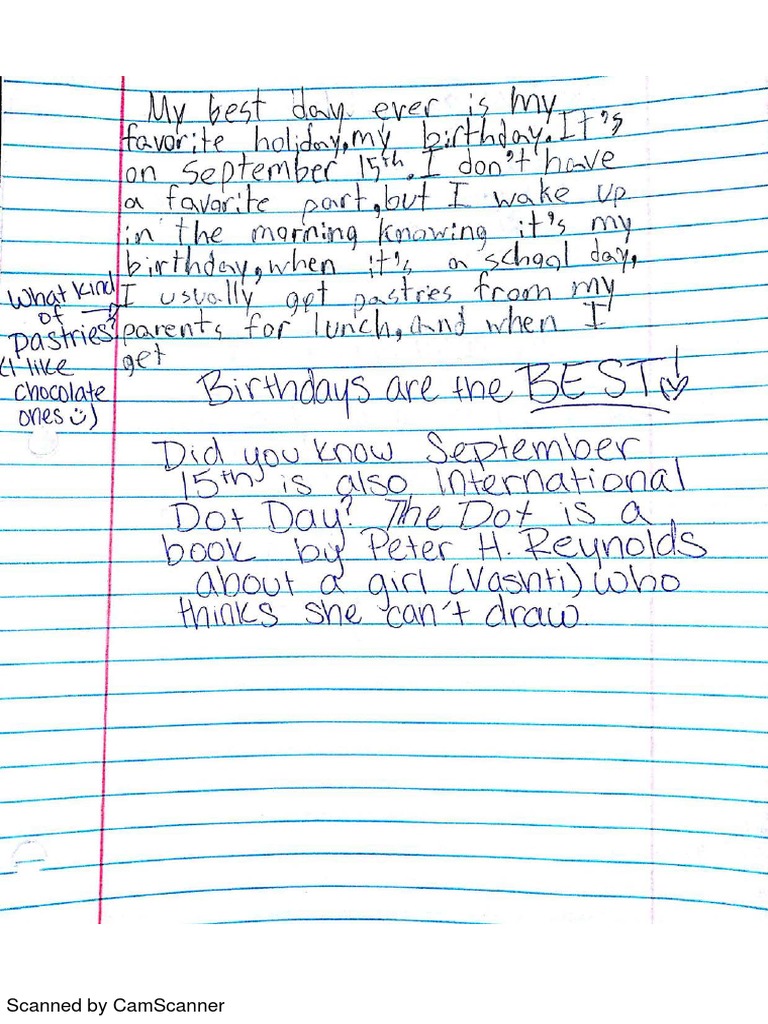 My best day ever is my
favorite holiday, my birthday. It's
on September 15th. I don't have
a favorite part, but I wake up
in the morning knowing it's my
birthday, when it's a school day,
I usually get pastries from my
parents for lunch, and when I
get
What kind
of
pastries?
(I like
chocolate
ones)
Birthdays are the BEST!
Did you know September
15th is also International
Dot Day? The Dot is a
book by Peter H. Reynolds
about a girl (Vashti) who
thinks she can't draw.
Scanned by CamScanner